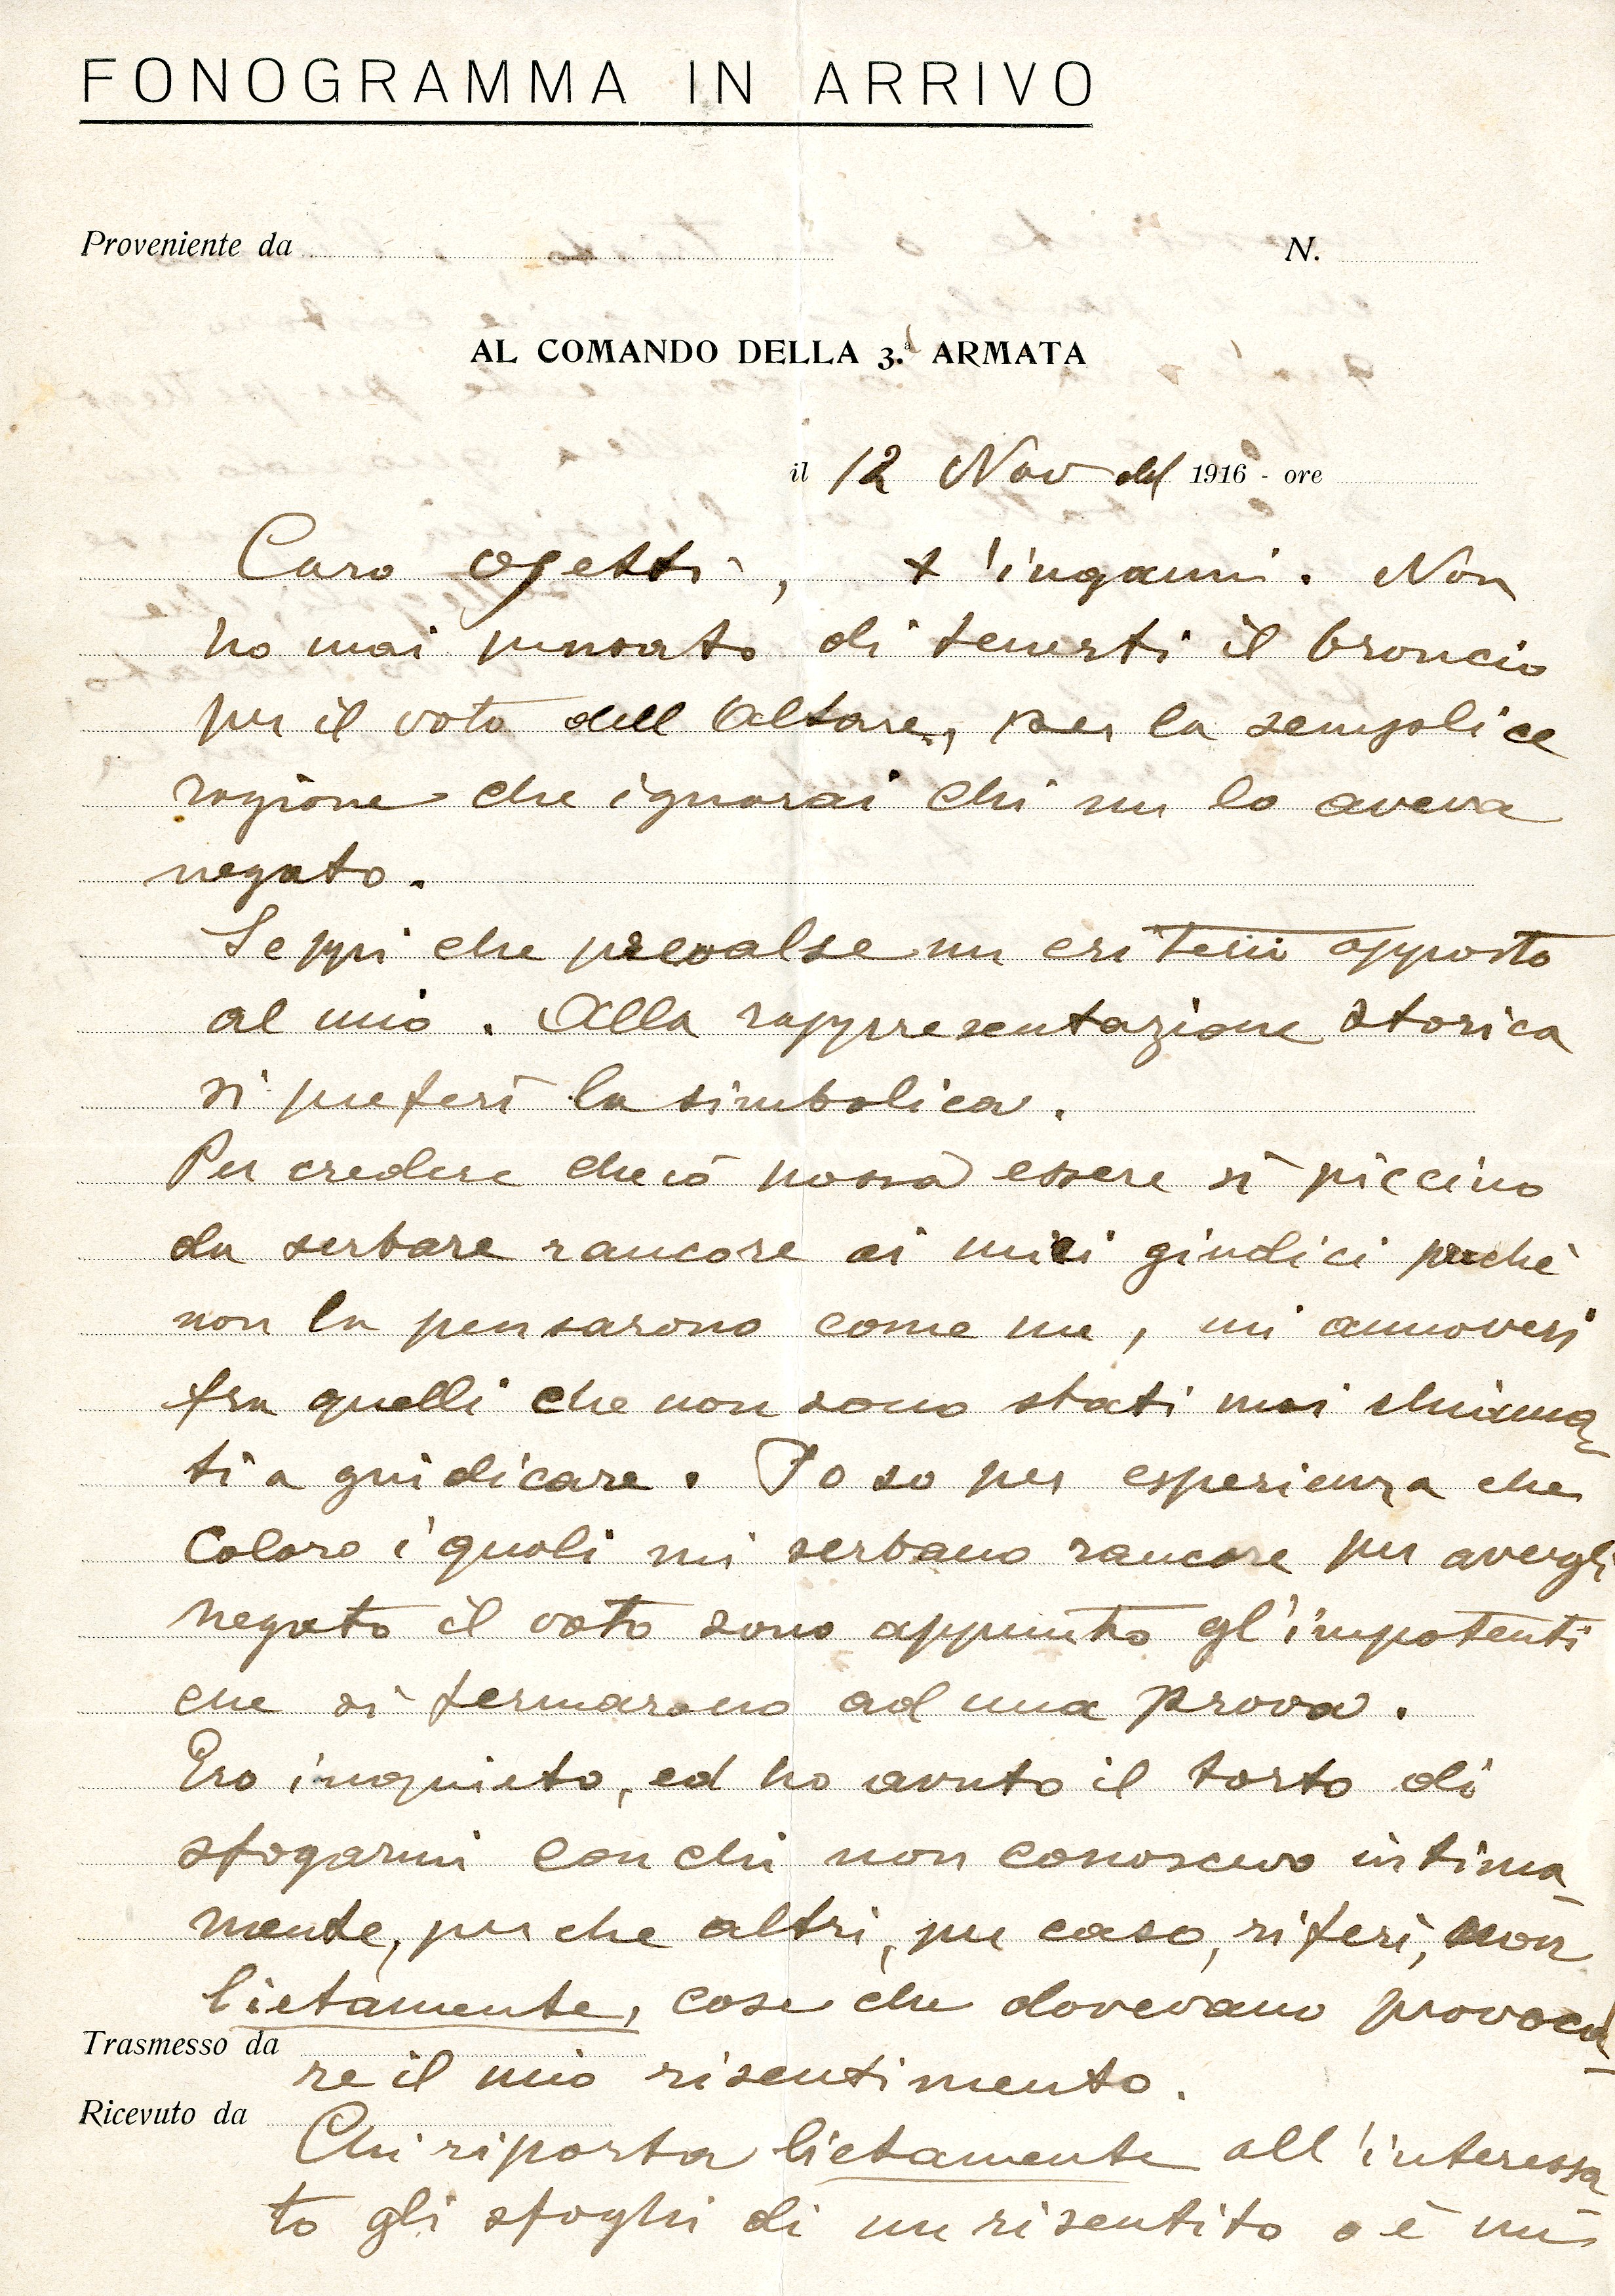 FONOGRAMMA IN ARRIVO
Proveniente da
N.
AL COMANDO DELLA 3.ª ARMATA
il 12 Nov del 1916 - ore
Caro Ojetti, t'inganni. Non
ho mai pensato di tenerti il broncio
per il voto dell Altare, per la semplice
ragione che ignorai chi me lo aveva
negato.
Seppi che prevalse un criterio opposto
al mio. Alla rappresentazione storica
si preferì la simbolica.
Per credere che io possa essere sì piccino
da serbare rancore ai miei giudici perchè
non la pensarono come me, mi annoveri
fra quelli che non sono stati mai chiama-
ti a giudicare. Io so per esperienza che
coloro i quali mi serbano rancore per avergli
negato il voto sono appunto gl'impotenti
che si fermarono ad una prova.
Ero inquieto, ed ho avuto il torto di
sfogarmi con chi non conoscevo intima-
mente, per che altri, per caso, riferì, non
lietamente, cose che dovevano provoca-
Trasmesso da
re il mio risentimento.
Ricevuto da
Chi riporta lietamente all'interessa-
to gli sfoghi di un risentito o è un